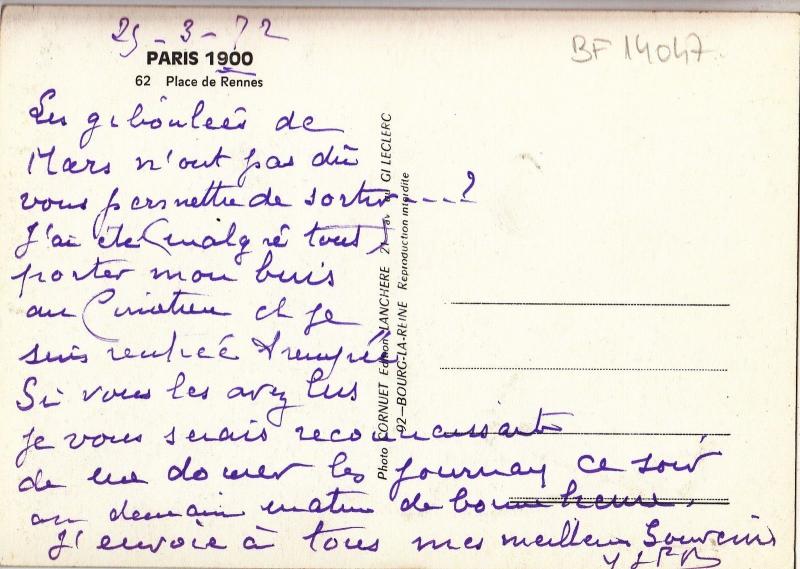 25-3-72
BF 14047
PARIS 1900
62 Place de Rennes
Les giboulées de
Mars n'ont pas dû
vous permettre de sortir....?
J'ai été (malgré tout)
porter mon buis
au Cimetière et je
suis rentrée trempée
Si vous les avez lus
je vous serais reconnaissante
de me donner les journaux ce soir
ou demain matin de bonne heure.
J'envoie à tous mes meilleurs Souvenirs
Photo CORNUET Edition LANCHERE 21 av du Gl LECLERC
92—BOURG-LA-REINE Reproduction interdite